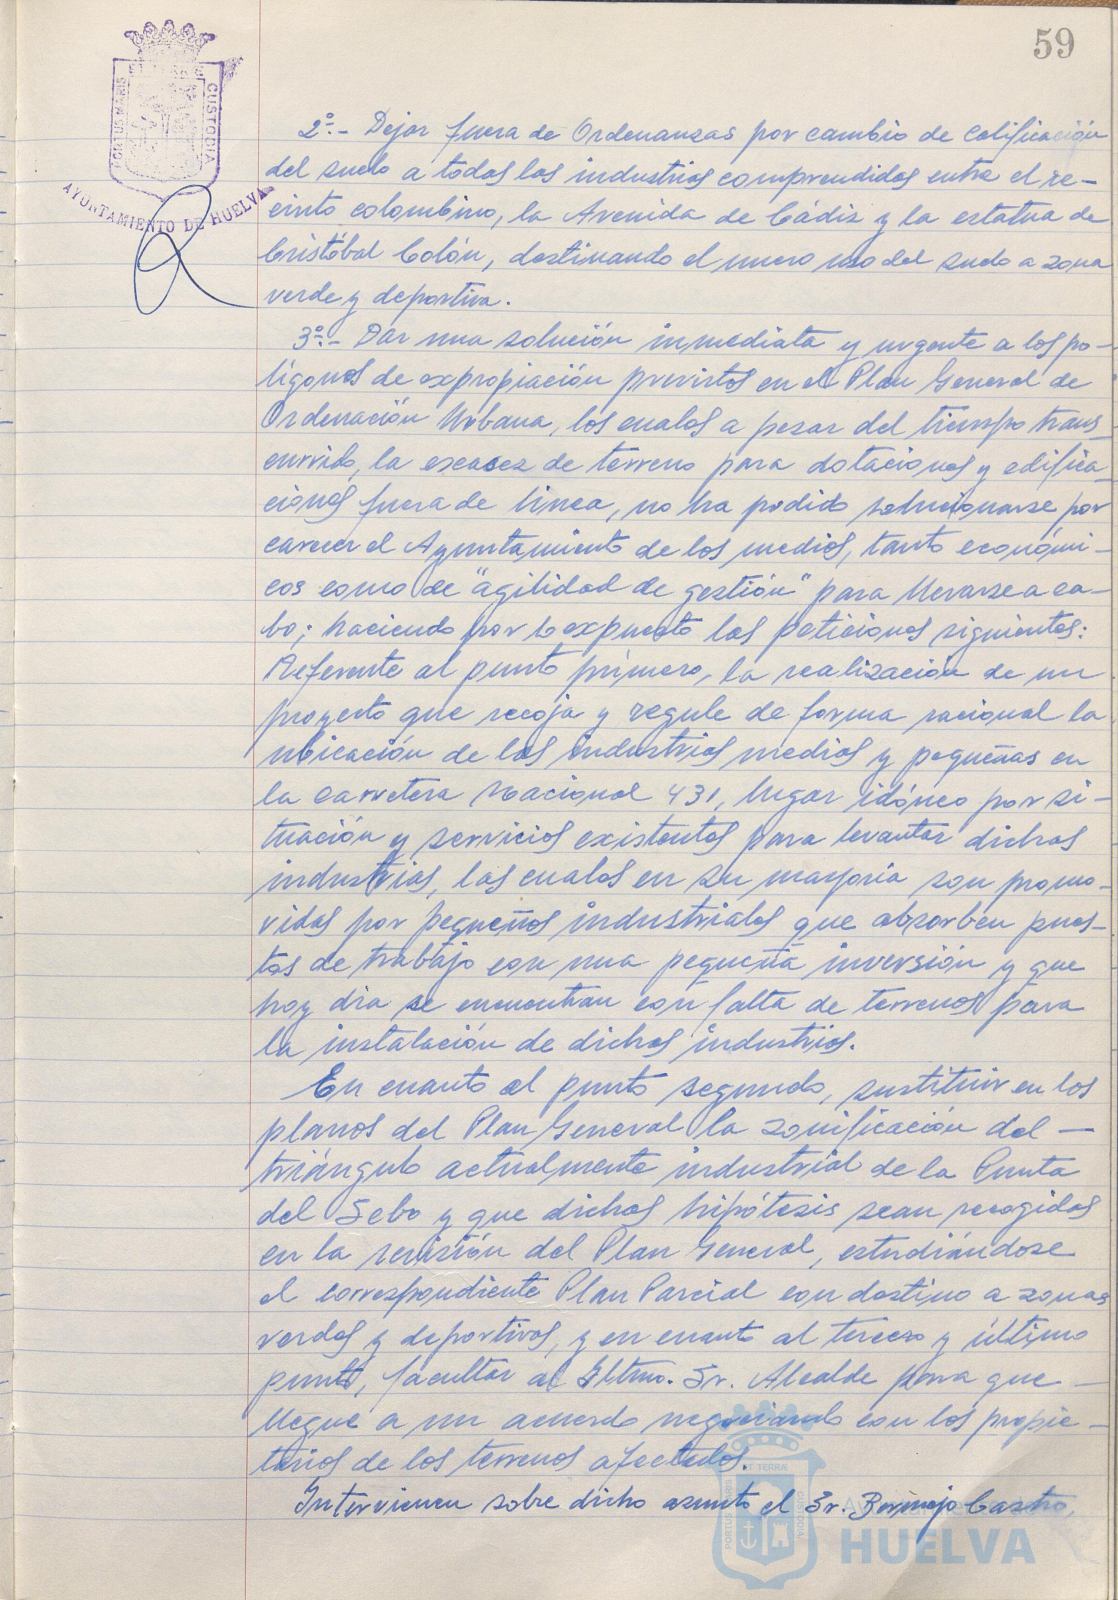 59
PORTUS MARIS
CUSTODIA
AYUNTAMIENTO DE HUELVA
2º.- Dejar fuera de Ordenanzas por cambio de calificación
del suelo a todas las industrias comprendidas entre el re-
cinto colombino, la Avenida de Cádiz y la estatua de
Cristóbal Colón, destinando el nuevo uso del suelo a zona
verde y deportiva.
3º.- Dar una solución inmediata y urgente a los po-
lígonos de expropiación previstos en el Plan General de
Ordenación Urbana, los cuales a pesar del tiempo trans-
currido, la escasez de terreno para dotaciones y edifica-
ciones fuera de línea, no ha podido solucionarse por
carecer el Ayuntamiento de los medios, tanto económi-
cos como de "agilidad de gestión" para llevarse a ca-
bo; haciendo por lo expuesto las peticiones siguientes:
Referente al punto primero, la realización de un
proyecto que recoja y regule de forma racional la
ubicación de las industrias medias y pequeñas en
la carretera nacional 431, lugar idóneo por si-
tuación y servicios existentes para levantar dichas
industrias, las cuales en su mayoría son promo-
vidas por pequeños industriales que absorben pues-
tos de trabajo con una pequeña inversión y que
hoy día se encuentran con falta de terrenos para
la instalación de dichas industrias.
En cuanto al punto segundo, sustituir en los
planos del Plan General la zonificación del -
triángulo actualmente industrial de la Punta
del Sebo y que dichas hipótesis sean recogidas
en la revisión del Plan General, estudiándose
el correspondiente Plan Parcial con destino a zonas
verdes y deportivas, y en cuanto al tercero y último
punto, facultar al Iltmo. Sr. Alcalde para que -
llegue a un acuerdo negociando con los propie-
tarios de los terrenos afectados.
Intervienen sobre dicho asunto el Sr. Bermejo Castro,
PORTUS MARIS
ET TERRÆ
CUSTODIA
HUELVA